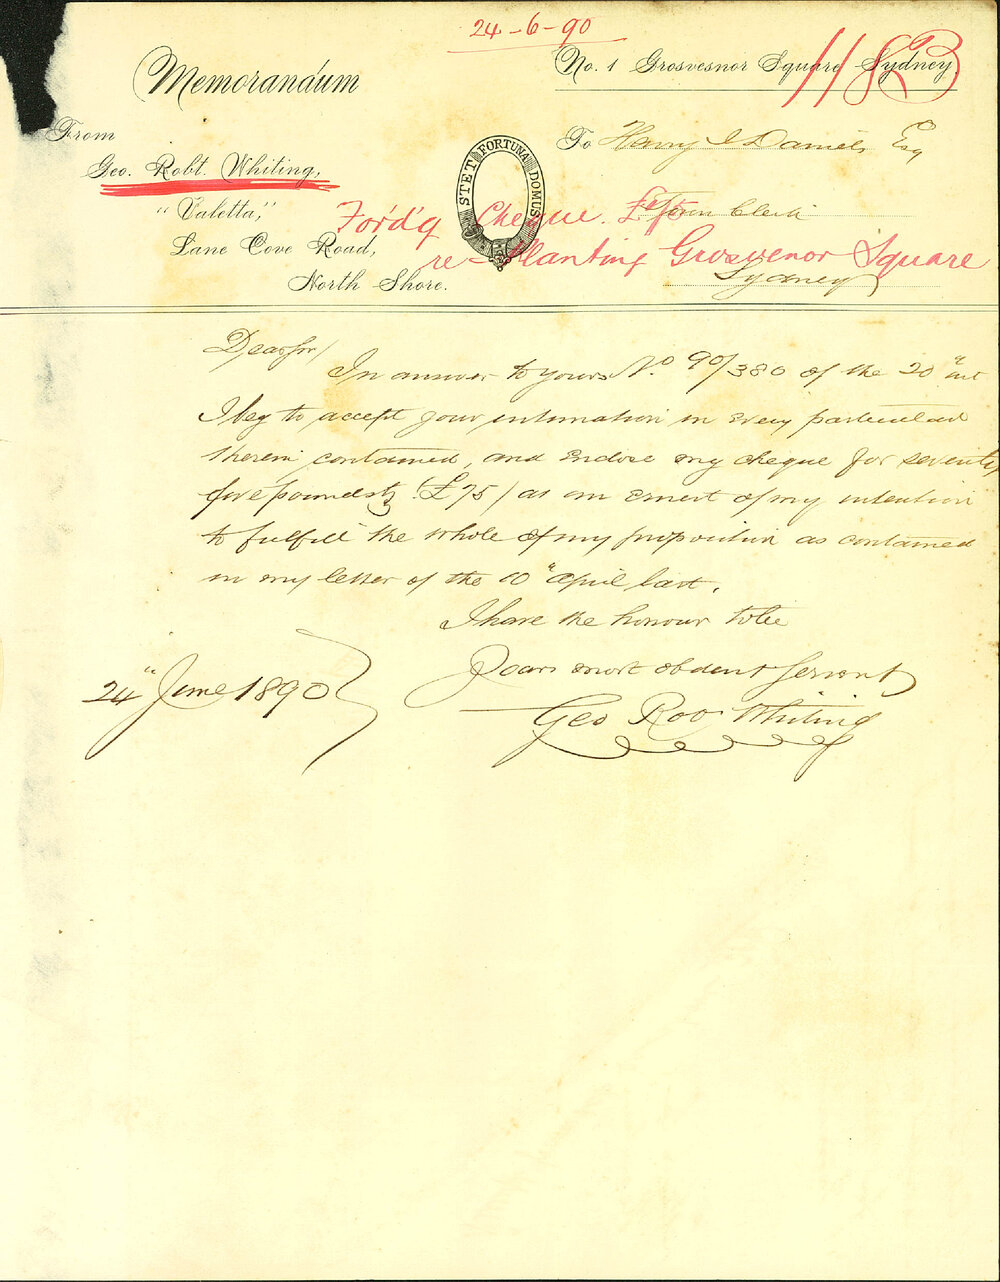 24-6-90
Memorandum
No. 1 Grosvesnor Square Sydney.
1183
From
Geo. Robt. Whiting,
"Valetta,"
Lane Cove Road,
North Shore.
STET FORTUNA DOMUS
To Henry J Daniels Esq
Town Clerk
Sydney
Ford'g Cheque. £75
re- Planting Grosvenor Square
Dear Sir/
In answer to yours No. 90/380 of the 20" inst
I beg to accept your intimation in every particular
therein contained, and endose my cheque for seventy
five pounds (£75/ as an ernest of my intention
to fulfill the whole of my proposition as contained
in my letter of the 10" April last.
I have the honour to be
Yours most obdient Servant
Geo Rob Whiting
24" June 1890